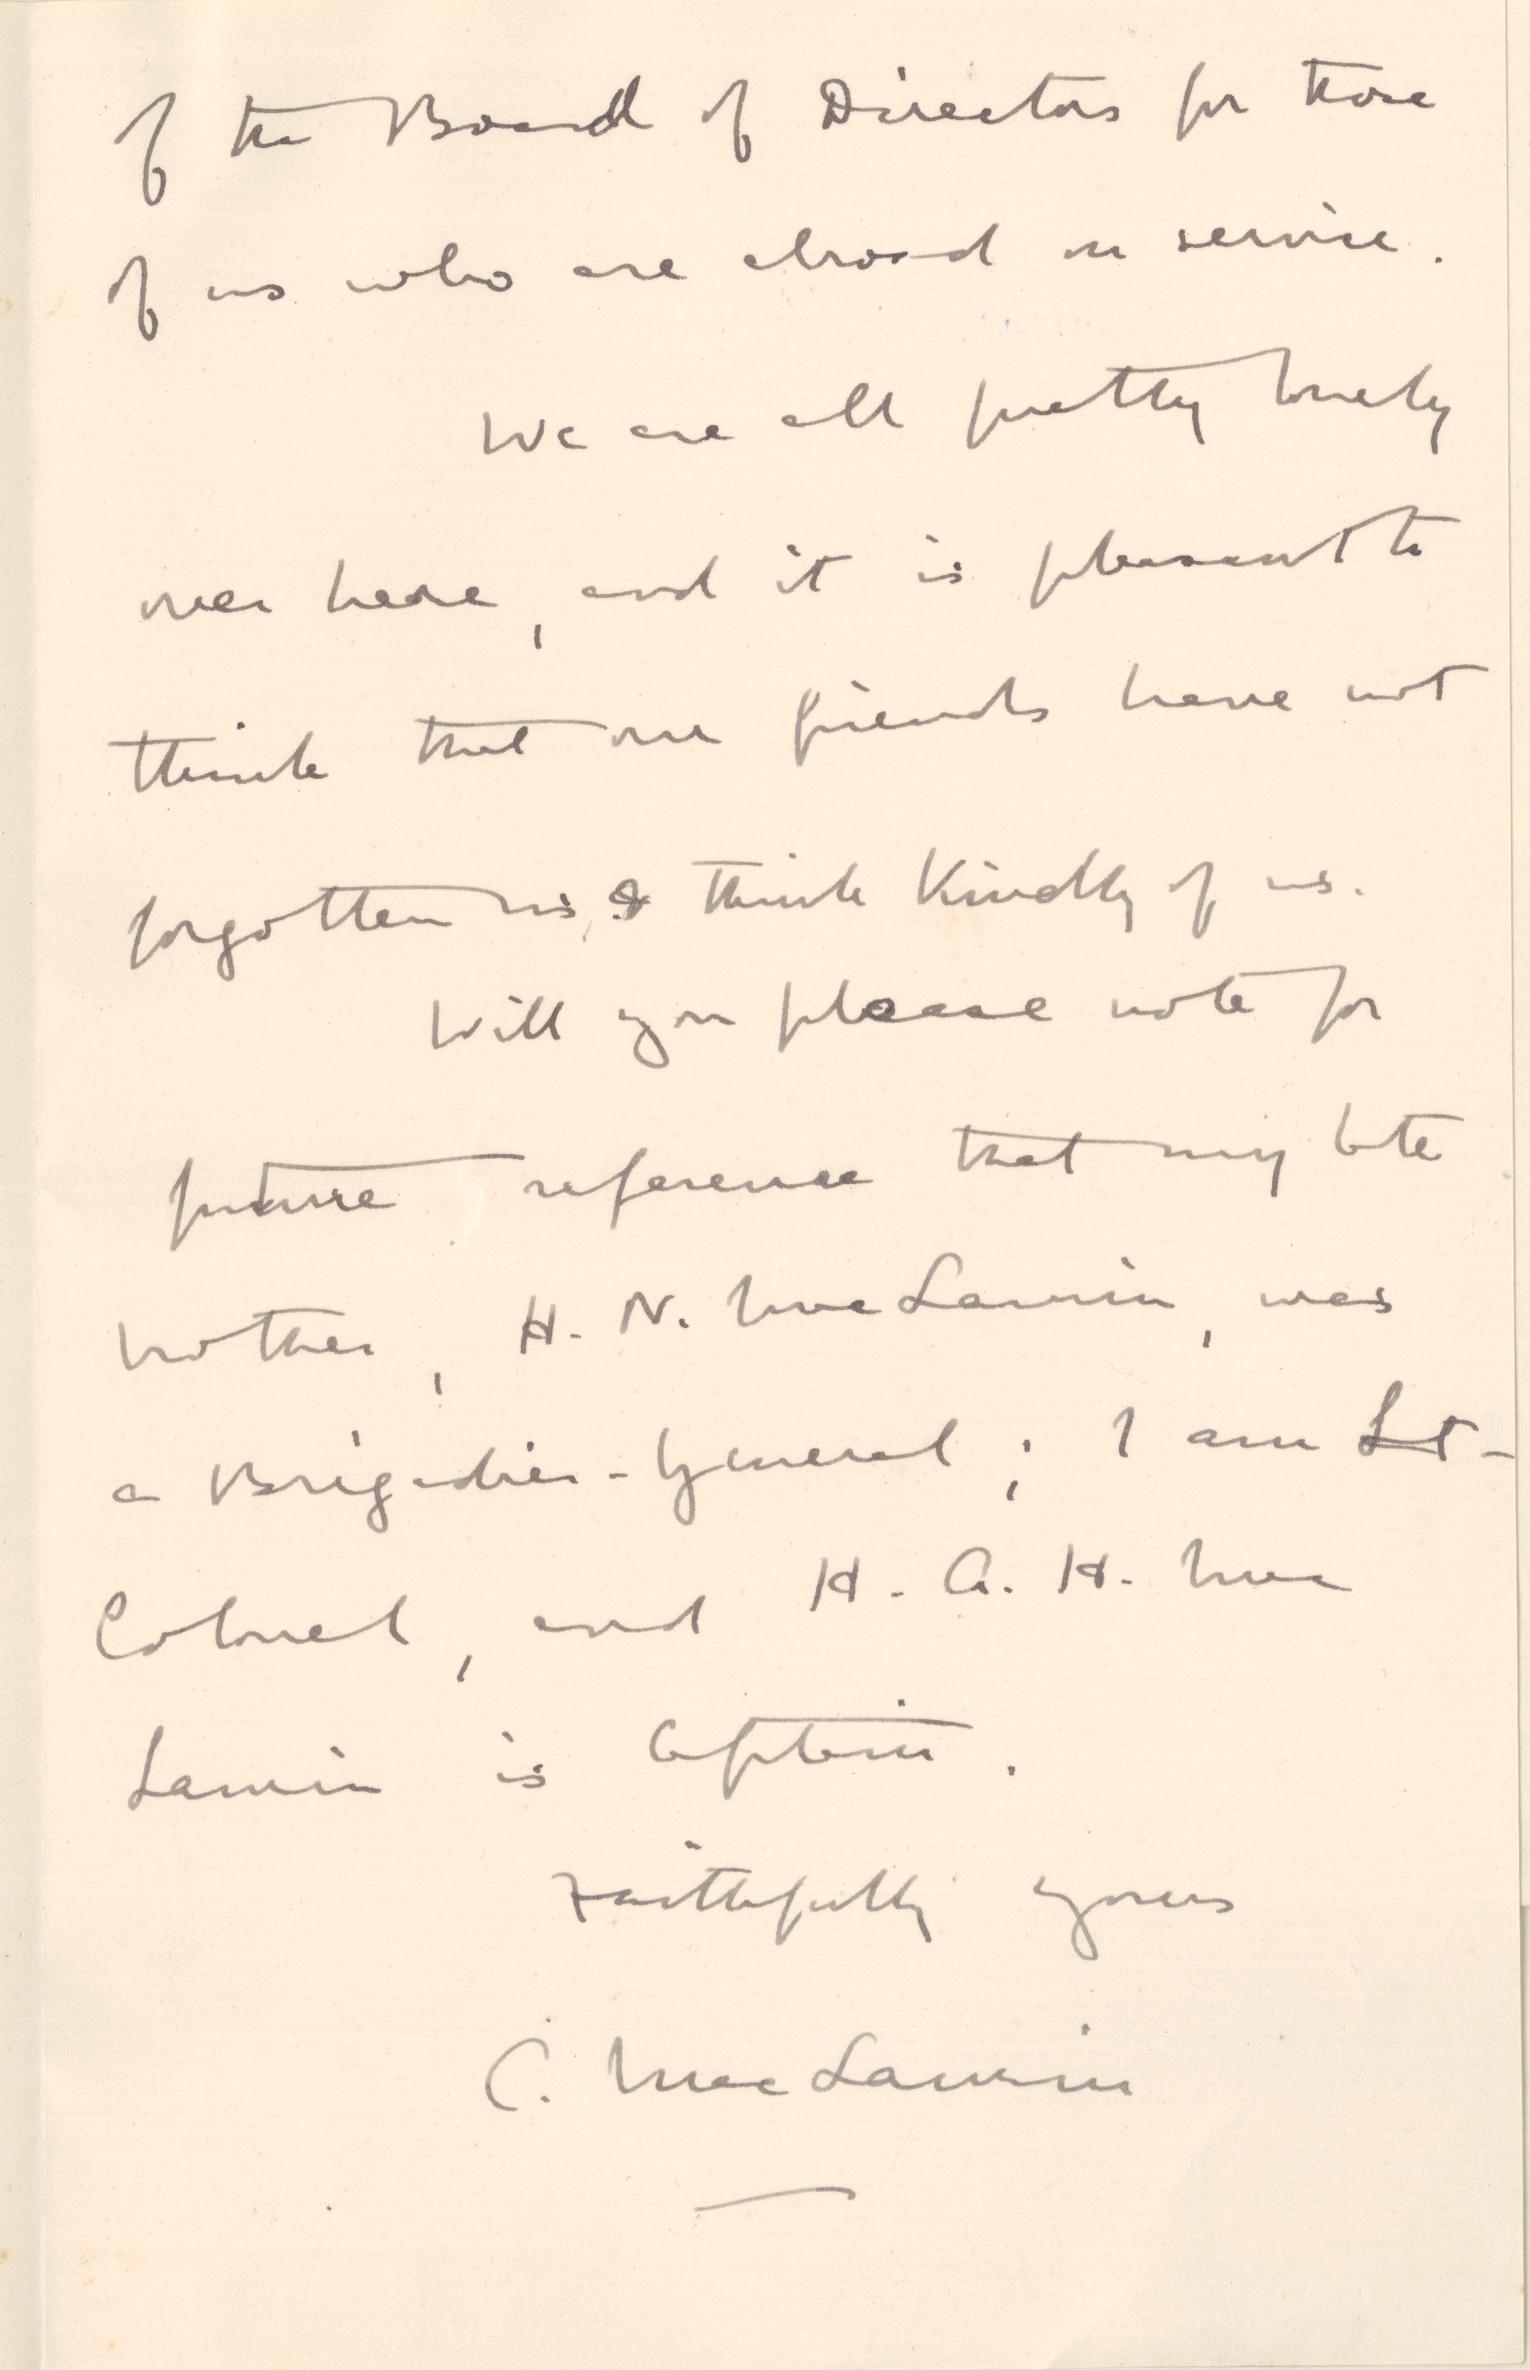 of the Board of Directors for those
of us who are abroad on service.
We are all pretty lonely
over here, and it is pleasant to
think that our friends have not
forgotten us, & think kindly of us.
Will you please note for
future reference that my late
brother, H. N. MacLaurin, was
a Brigadier-General; I am Lt-
Colonel, and H. A. H. Mac
Laurin is Captain.
Faithfully yours
C. MacLaurin